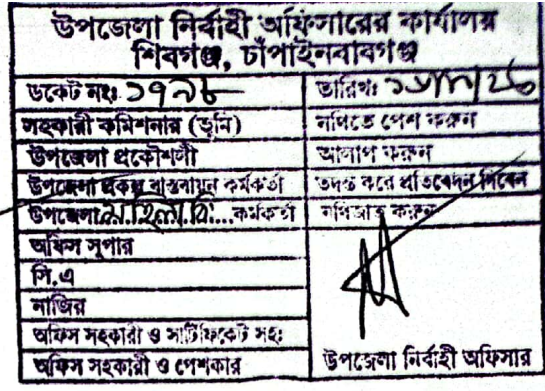 উপজেলা নির্বাহী অফিসারের কার্যালয়
শিবগঞ্জ, চাঁপাইনবাবগঞ্জ
ডকেট নহঃ ১৭৯৮
তারিখঃ
সহকারী কমিশনার (ভূমি)
নথিতে পেশ করুন
উপজেলা প্রকৌশলী
আলাপ করুন
উপজেলা প্রকল্প বাস্তবায়ন কর্মকর্তা
তদন্ত করে প্রতিবেদন দিবেন
উপজেলা ... কর্মকর্তা
নথিজাত করুন
অফিস সুপার
সি.এ
নাজির
অফিস সহকারী ও সার্টিফিকেট সহঃ
অফিস সহকারী ও পেশকার
উপজেলা নির্বাহী অফিসার